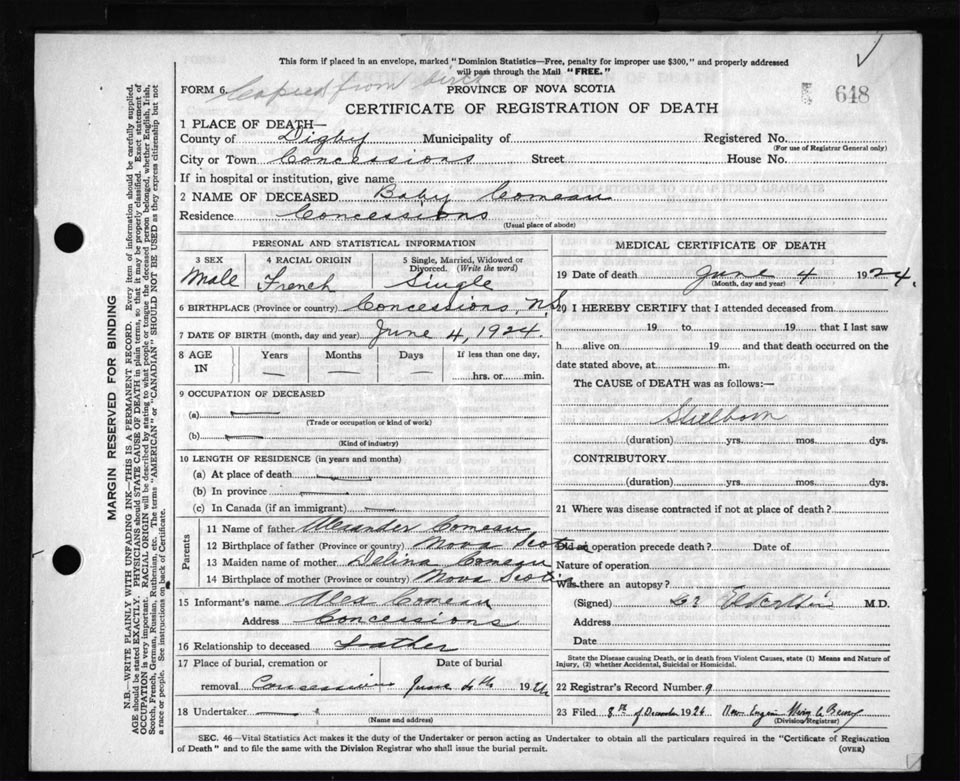 This form if placed in an envelope, marked "Dominion Statistics—Free, penalty for improper use $300," and properly addressed
will pass through the Mail "FREE."
FORM 6. Copied from birth PROVINCE OF NOVA SCOTIA
648
CERTIFICATE OF REGISTRATION OF DEATH
1 PLACE OF DEATH—
County of Digby Municipality of Registered No.
(For use of Registrar General only)
City or Town Concessions Street House No.
If in hospital or institution, give name
2 NAME OF DECEASED Baby Comeau
Residence Concessions
(Usual place of abode)
PERSONAL AND STATISTICAL INFORMATION
3 SEX 4 RACIAL ORIGIN 5 Single, Married, Widowed or
Divorced. (Write the word)
Male French Single
6 BIRTHPLACE (Province or country) Concessions, N.S.
7 DATE OF BIRTH (month, day and year) June 4, 1924.
8 AGE IN Years Months Days If less than one day,
— — — hrs. or min.
9 OCCUPATION OF DECEASED
(a)
(Trade or occupation or kind of work)
(b)
(Kind of industry)
10 LENGTH OF RESIDENCE (in years and months)
(a) At place of death
(b) In province
(c) In Canada (if an immigrant)
Parents
11 Name of father Alexander Comeau
12 Birthplace of father (Province or country) Nova Scotia
13 Maiden name of mother Delina Comeau
14 Birthplace of mother (Province or country) Nova Scotia
15 Informant's name Alex Comeau
Address Concessions
16 Relationship to deceased Father
17 Place of burial, cremation or Date of burial
removal Concessions June 4th 1924
18 Undertaker
(Name and address)
MEDICAL CERTIFICATE OF DEATH
19 Date of death June 4 1924.
(Month, day and year)
20 I HEREBY CERTIFY that I attended deceased from
19 to 19 that I last saw
h alive on 19 and that death occurred on the
date stated above, at m.
The CAUSE of DEATH was as follows:—
Stillborn
(duration) yrs. mos. dys.
CONTRIBUTORY
(duration) yrs. mos. dys.
21 Where was disease contracted if not at place of death?
Did an operation precede death? Date of
Nature of operation
Was there an autopsy?
(Signed) M.D.
Address
Date
State the Disease causing Death, or in death from Violent Causes, state (1) Means and Nature of
Injury, (2) whether Accidental, Suicidal or Homicidal.
22 Registrar's Record Number 9
23 Filed 8th of December 1926
(Division Registrar)
SEC. 46—Vital Statistics Act makes it the duty of the Undertaker or person acting as Undertaker to obtain all the particulars required in the "Certificate of Registration
of Death" and to file the same with the Division Registrar who shall issue the burial permit. (OVER)
MARGIN RESERVED FOR BINDING
N.B.—WRITE PLAINLY WITH UNFADING INK—THIS IS A PERMANENT RECORD. Every item of information should be carefully supplied.
AGE should be stated EXACTLY. PHYSICIANS should STATE CAUSE OF DEATH in plain terms, so that it may be properly classified. Exact statement of
OCCUPATION is very important. RACIAL ORIGIN will be described by stating to what people or tongue the deceased person belonged, whether English, Irish,
Scotch, French, German, Russian, Ruthenian, etc. The terms "AMERICAN" or "CANADIAN" SHOULD NOT BE USED as they express citizenship but not
a race or people. See instructions on back of Certificate.